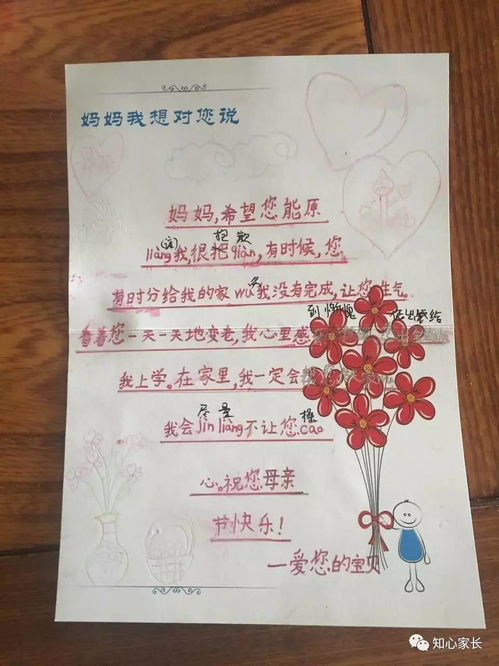 妈妈我想对您说
妈妈,希望您能原
(谅)
liàng我,很抱qiàn,有时候,您
抱歉
有时分给我的家wù我没有完成,让您生气。
务
看着您一天一天地变老,我心里感
到惭愧
给
我上学。在家里,我一定会
我会jìn liàng不让您cāo
尽量
操
心。祝您母亲
节快乐!
—爱您的宝贝
知心家长